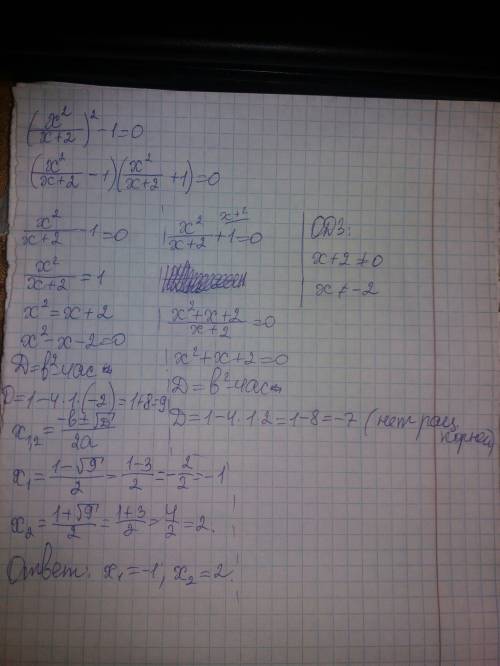 (x²/(x+2))² - 1 = 0
(x²/(x+2) - 1)(x²/(x+2) + 1) = 0
x²/(x+2) - 1 = 0
x²/(x+2) = 1
x² = x + 2
x² - x - 2 = 0
D = b² - 4ac
D = 1 - 4·1·(-2) = 1 + 8 = 9
x₁,₂ = (-b ± √D)/2a
x₁ = (1 - √9)/2 = (1 - 3)/2 = -2/2 = -1
x₂ = (1 + √9)/2 = (1 + 3)/2 = 4/2 = 2.
x+2
x²/(x+2) + 1 = 0
(x² + x + 2)/(x+2) = 0
x² + x + 2 = 0
D = b² - 4ac
D = 1 - 4·1·2 = 1 - 8 = -7 (нет рац. корней)
ОДЗ:
x + 2 ≠ 0
x ≠ -2
Ответ: x₁ = -1, x₂ = 2.